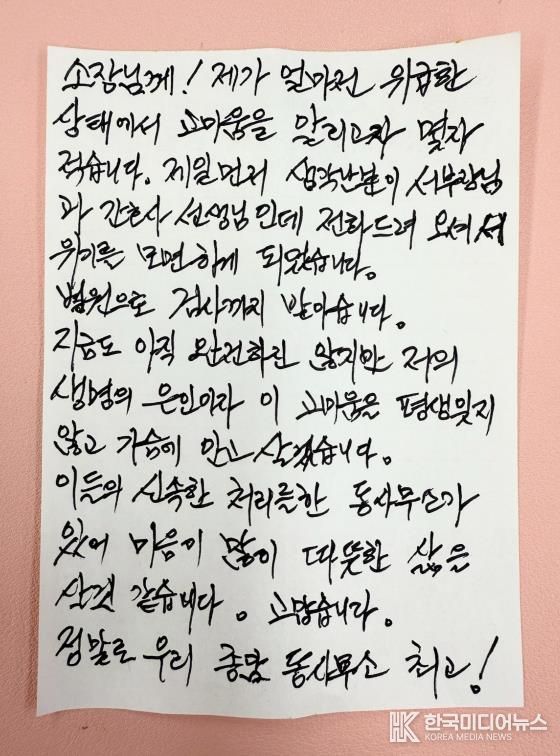 소장님께! 제가 얼마전 위급한
상태에서 고마움을 알리고자 몇자
적습니다. 제일먼저 생각난분이 서부장님
과 간호사 선생님인데 전화드려 오셔서
위기를 모면하게 되었습니다.
병원으로 검사까지 받아습니다.
지금도 아직 완전하진 않지만 저의
생명의 은인이라 이 고마움을 평생잊지
않고 가슴에 안고 살겠습니다.
이들의 신속한 처리를한 동사무소가
있어 마음이 많이 따뜻한 삶을
산것 같습니다. 고맙습니다.
정말로 우리 종암 동사무소 최고!
HK 한국미디어뉴스
KOREA MEDIA NEWS